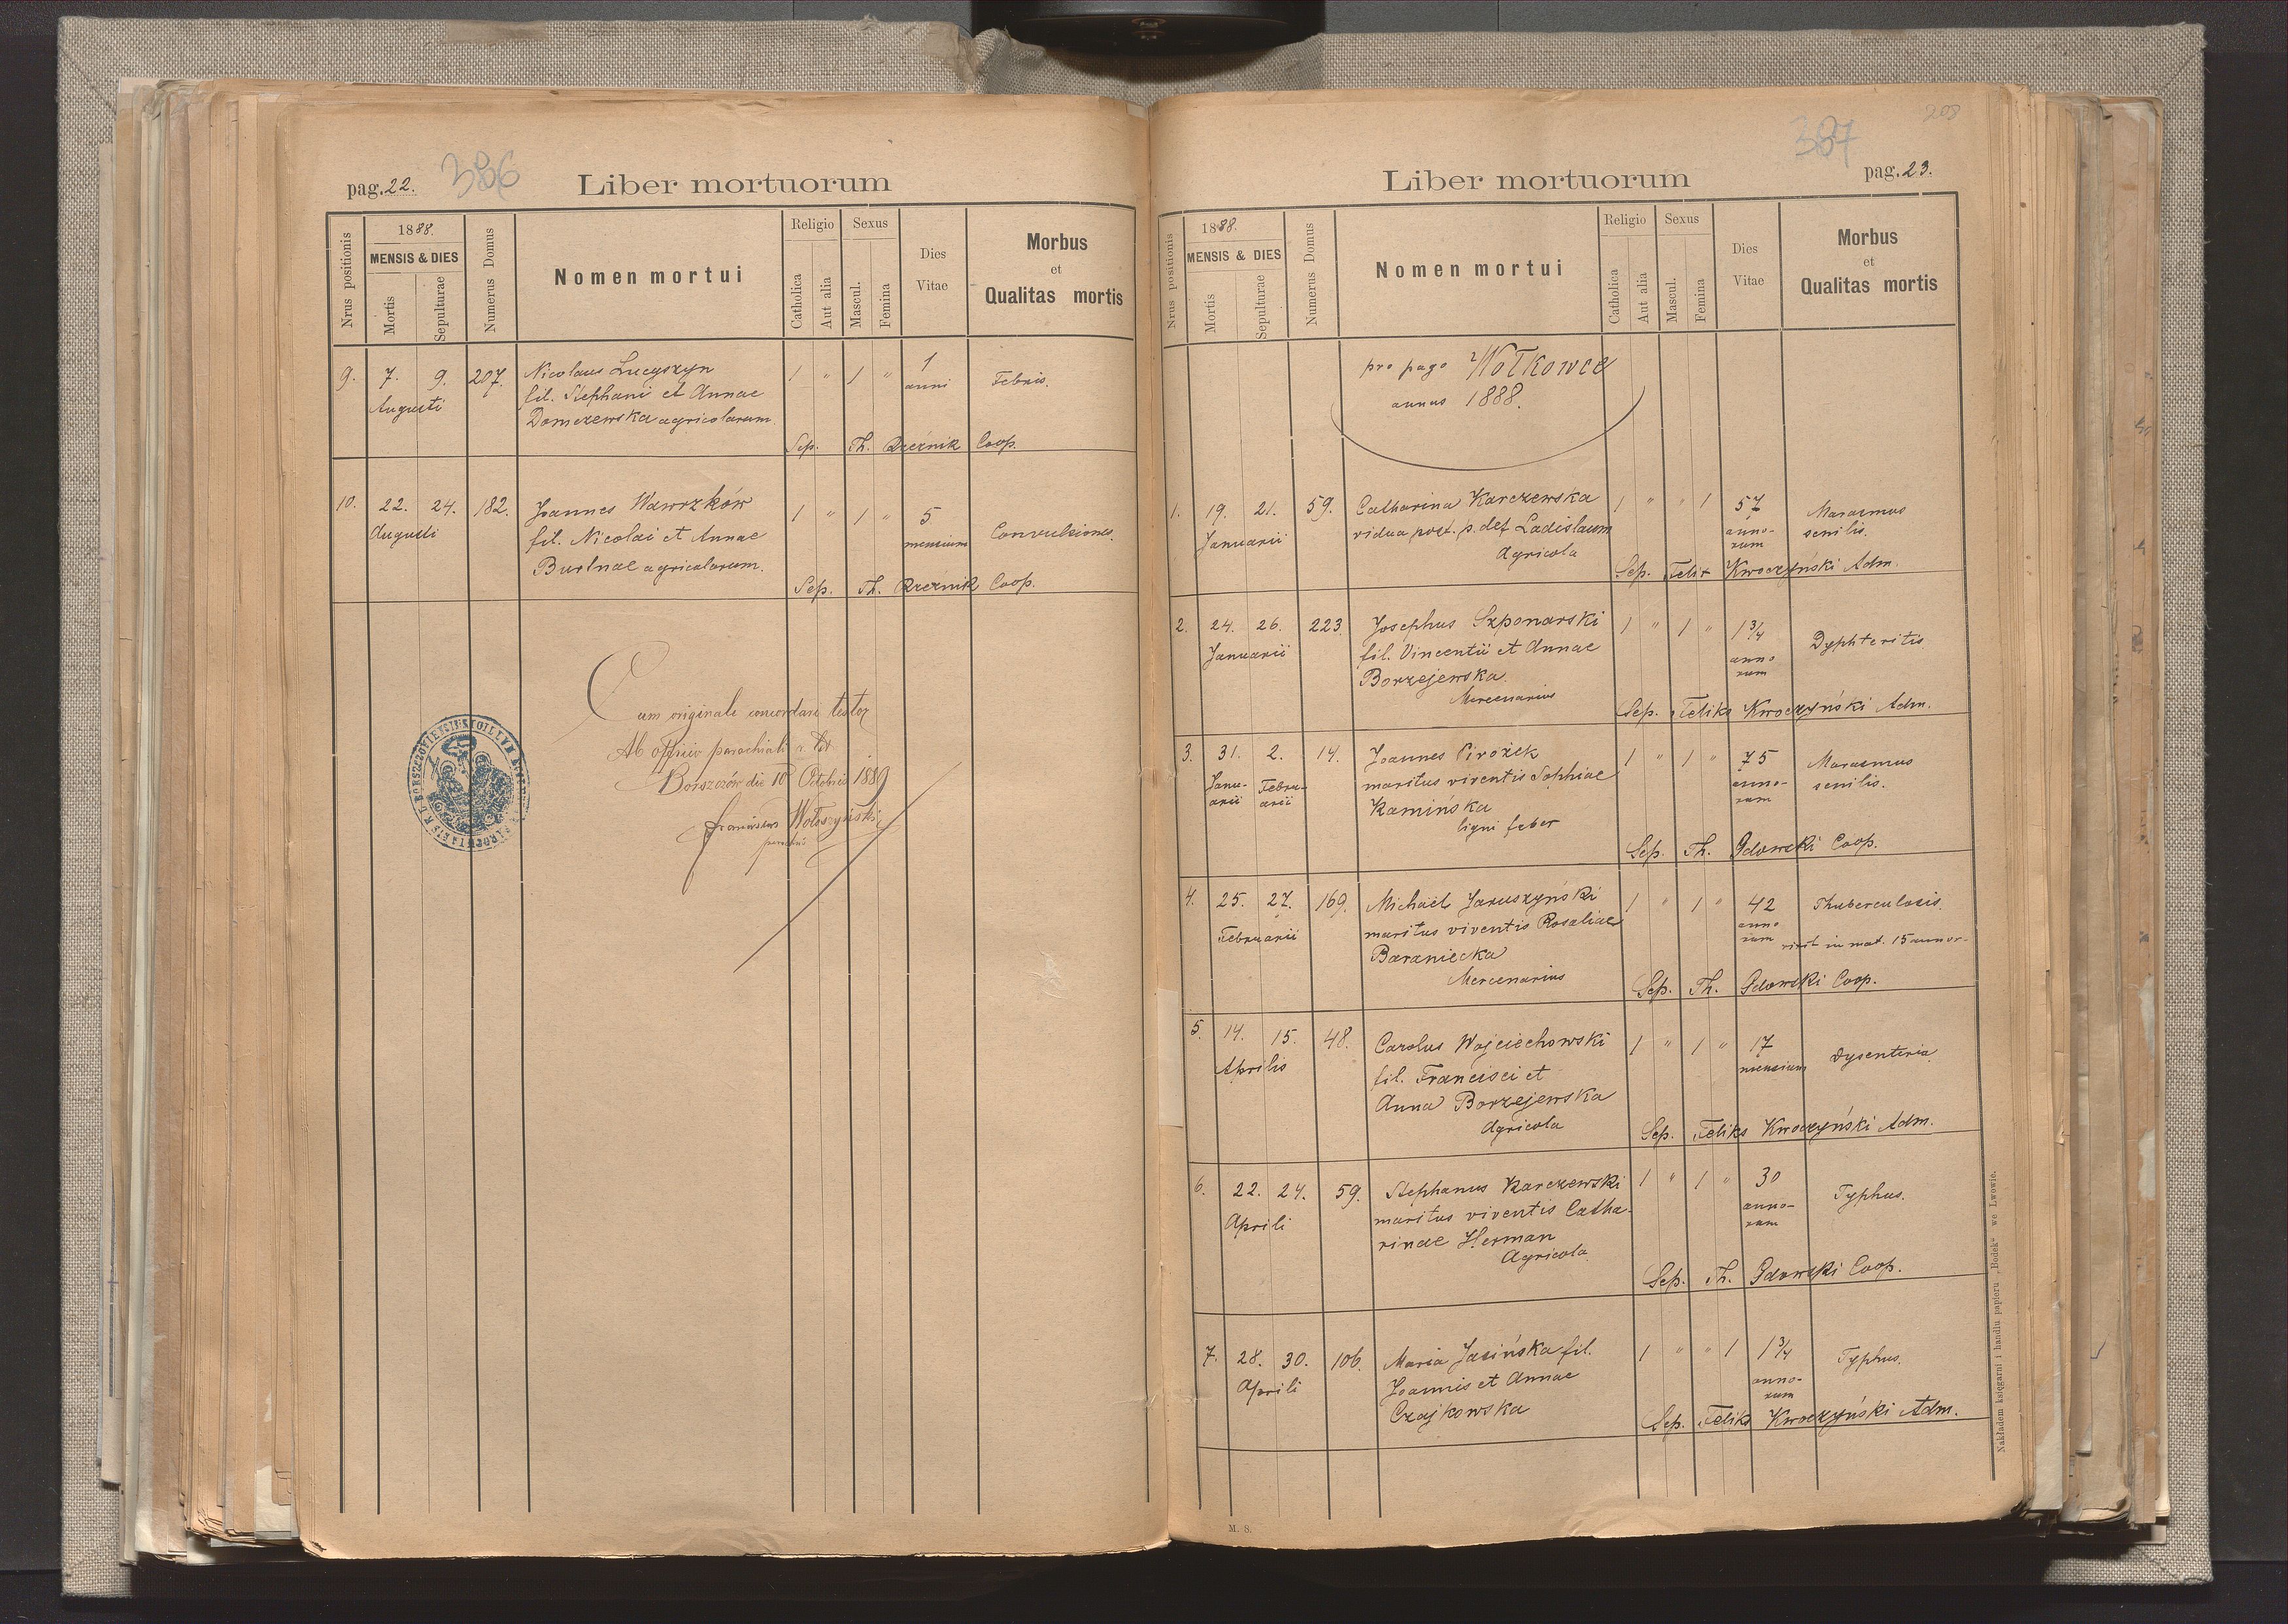 pag. 22.
386
Liber mortuorum
Nrus positionis
1888.
MENSIS & DIES
Mortis
Sepulturae
Numerus Domus
Nomen mortui
Religio
Catholica
Aut alia
Sexus
Mascul.
Femina
Dies
Vitae
Morbus
et
Qualitas mortis
9. 7. 9. 207. Nicolaus Lucyszyn 1 " 1 " 1
Augusti fil. Stephani et Annae anni Febris.
Domczewska agricolarum
Sep. Th. Rzeźnik Coop.
10. 22. 24. 182. Joannes Wawrzków 1 " 1 " 5
Augusti fil. Nicolai et Annae mensium Convulsiones.
Burlnae agricolarum.
Sep. Th. Rzeźnik Coop.
Cum originali concordare testor
Ab officio parochiali r. lat.
Borszczów die 10 Octobris 1889
Franciscus Wołoszyński
parochus
387
203
Liber mortuorum
pag. 23.
Nrus positionis
1888.
MENSIS & DIES
Mortis
Sepulturae
Numerus Domus
Nomen mortui
Religio
Catholica
Aut alia
Sexus
Mascul.
Femina
Dies
Vitae
Morbus
et
Qualitas mortis
pro pago Wołkowce
annus 1888.
1. 19. 21. 59. Catharina Karczewska 1 " " 1 57 Marasmus
Januarii vidua post. p. def Ladislaum anno- senilis.
Agricola rum
Sep. Felix Kwoczyński Adm.
2. 24. 26. 223 Josephus Szponarski 1 " 1 " 1 3/4 Dyphteritis
Januarii fil. Vincentii et Annae anno
Borzejewska. rum
Mercenarius
Sep. Feliks Kwoczyński Adm.
3. 31. 2. 14. Joannes Pirożek 1 " 1 " 75 Marasmus
Janu- Febru- maritus viventis Sophiae anno- senilis.
arii arii Kamińska rum
ligni faber
Sep. Th. Gdowski Coop.
4. 25. 27. 169. Michaël Jaruszyński 1 " 1 " 42 Thuberculosis.
Februarii maritus viventis Rosaliae anno
Baraniecka rum vixit in mat. 15 annor-
Mercenarius
Sep. Th. Gdowski Coop.
5. 14. 15. 48. Carolus Wojciechowski 1 " 1 " 17 Dysenteria
Aprilis fil. Francisci et mensium
Anna Borzejewska
Agricola
Sep. Feliks Kwoczyński Adm.
6. 22. 24. 59. Stephanus Karczewski 1 " 1 " 30 Typhus.
Aprili maritus viventis Catha- anno-
rinae Herman rum
Agricola
Sep. Th. Gdowski Coop.
7. 28. 30. 106. Maria Jasińska fil. 1 " " 1 1 3/4 Typhus.
Aprili Joannis et Annae anno-
Czajkowska rum
Sep. Feliks Kwoczyński Adm.
Nakładem księgarni i handlu papieru „Bodek“ we Lwowie.
M. S.